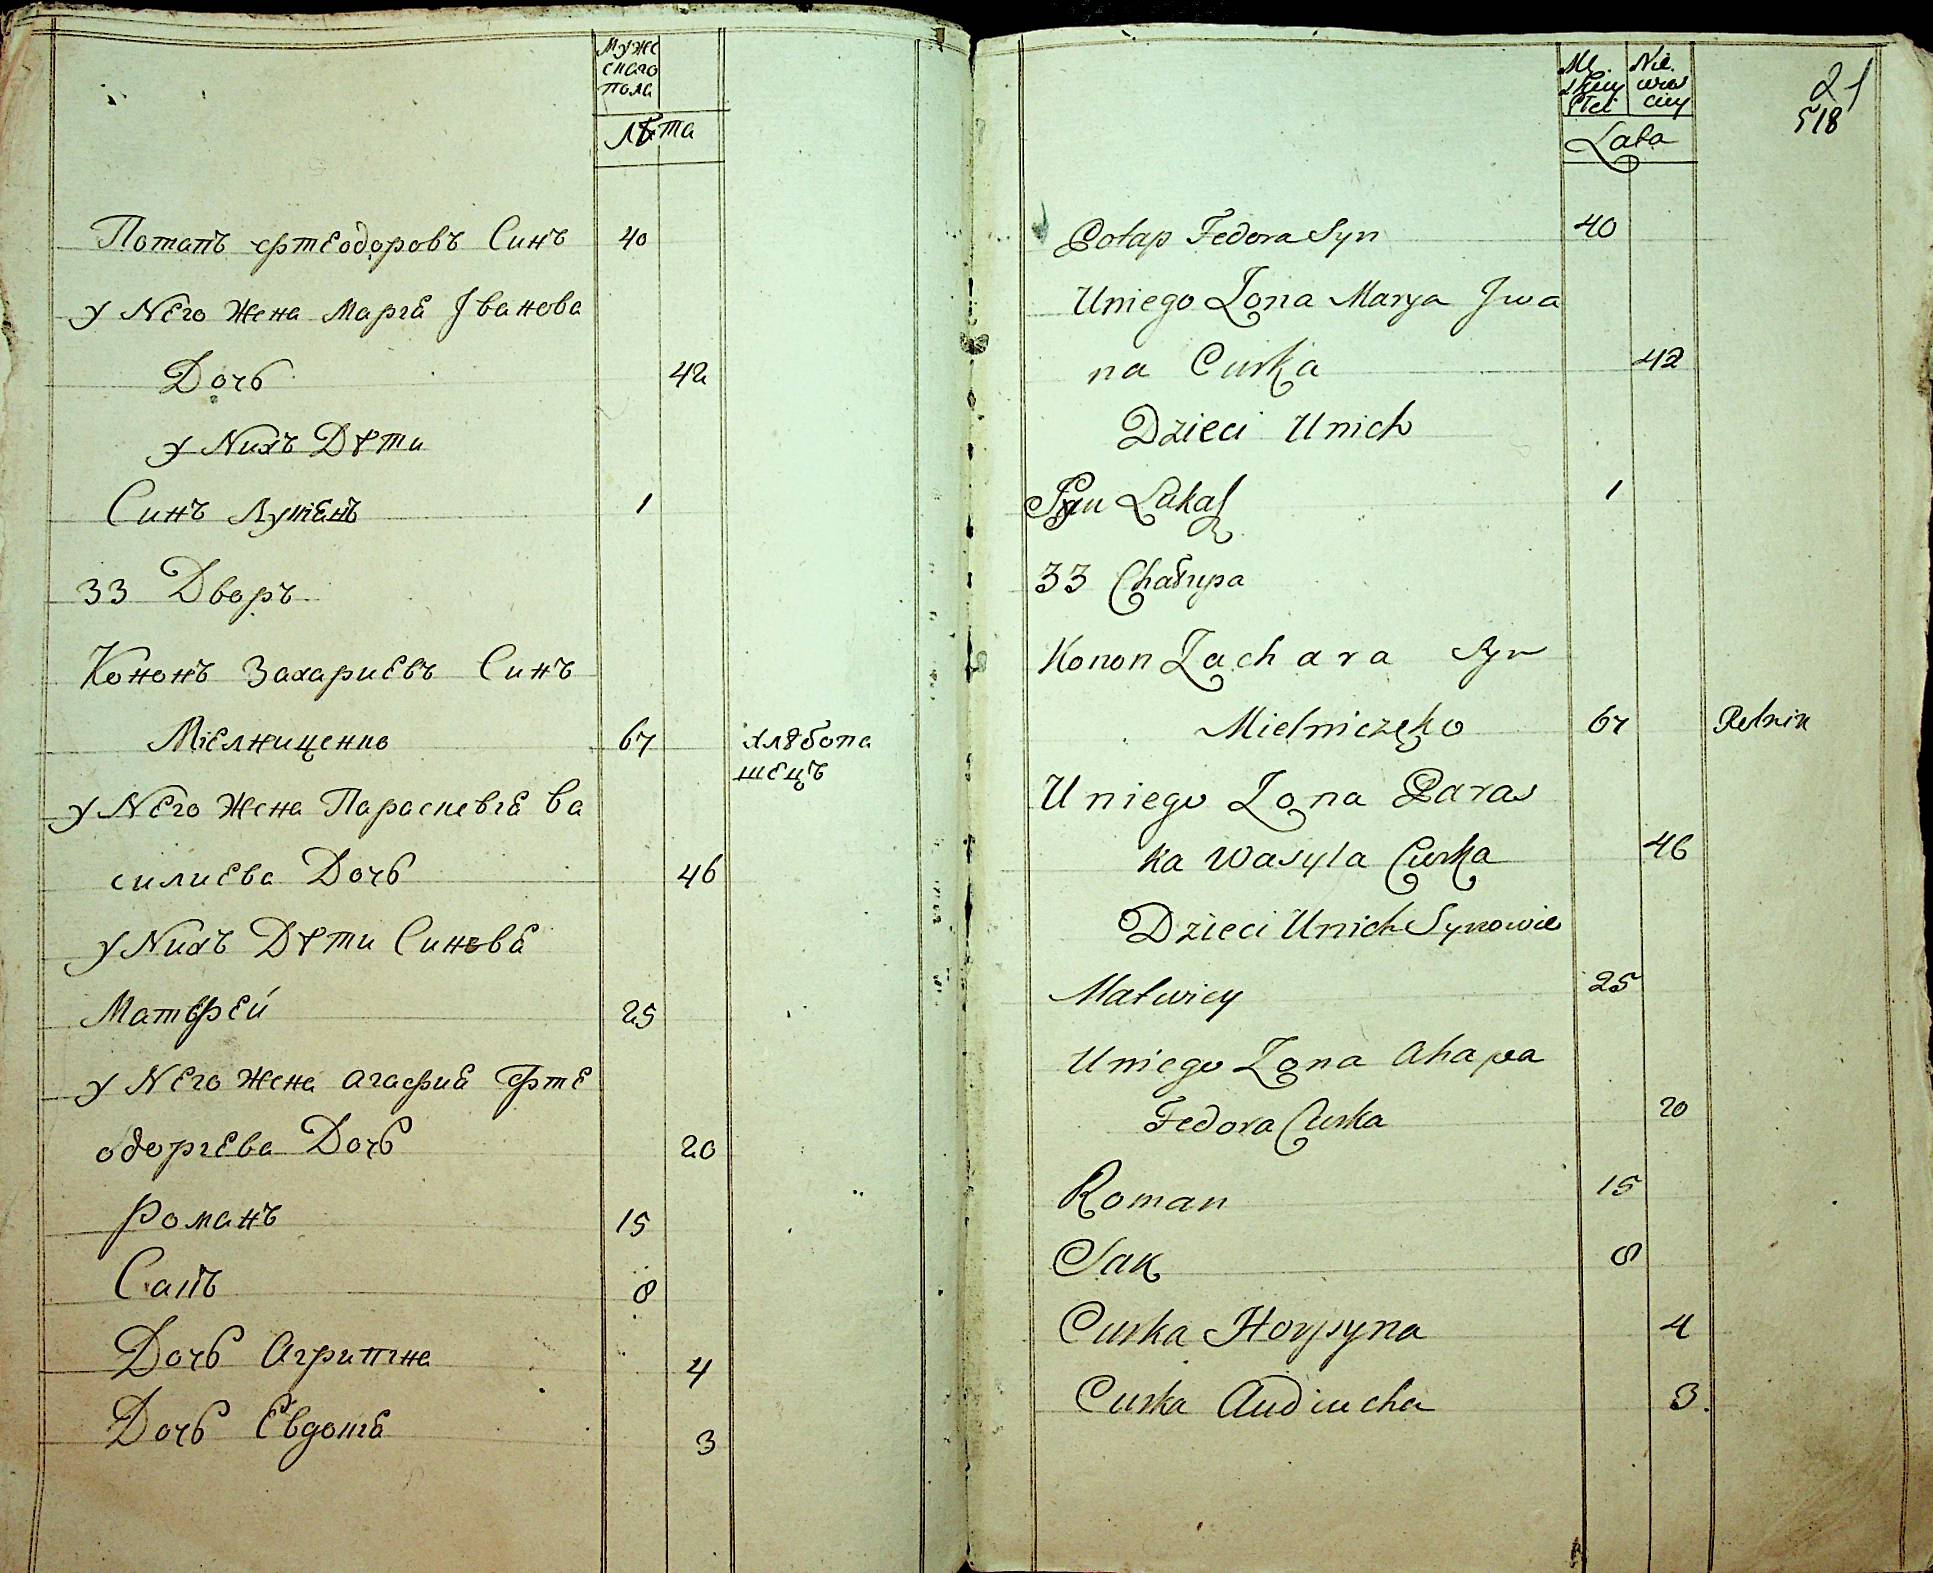 Мужс
скаго
пола
Лѣта
Потапъ Фтеодоровъ Синъ 40
у Него Жена Мария Iванова
Дочь 42
у Нихъ Дѣти
Синъ 1
33 Дворъ
Кононъ Захариевъ Синъ
Миелниценко 67 хлѣбопа
шецъ
у Него Жена Параскевгя ва
силиева Дочь 46
у Нихъ Дѣти Синовя
Матвфей 25
у Него Жена Агафия Фте
одоргева Дочь 20
Романъ 15
Сакъ 8
Дочь Агрипгна 4
Дочь Евдокгя 3
Nie
wias
ciey
21
518
Lata
Potap Fedora Syn 40
Uniego Zona Marya Jwa
na Curka 42
Dzieci Unich
Syn Lukasz 1
33 Chałupa
Konon Zachara Syn
Mielniczęko 67 Rolnik
Uniego Zona Paras
ka Wasyla Curka 46
Dzieci Unich Synowie
Matwiey 25
Uniego Zona Ahapa
Fedora Curka 20
Roman 15
Sak 8
Curka Horpyna 4
Curka Audiucha 3.